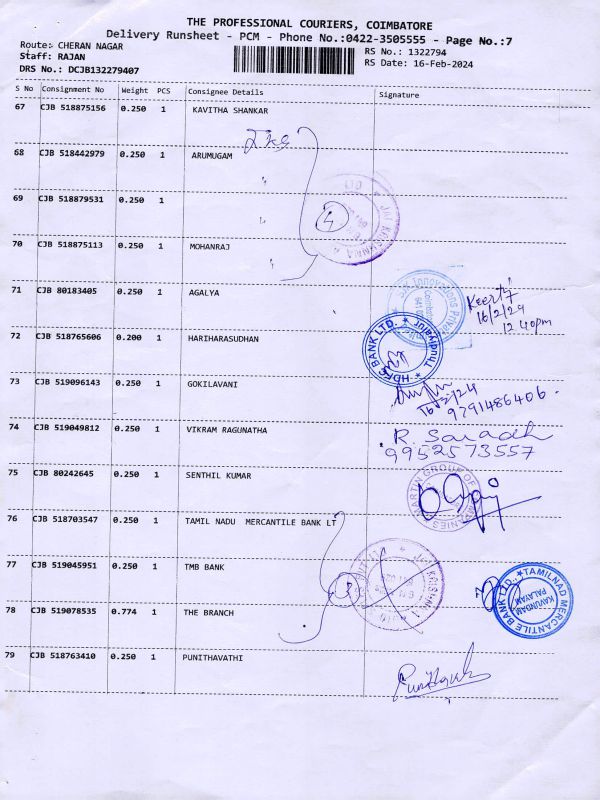 THE PROFESSIONAL COURIERS, COIMBATORE
Delivery Runsheet - PCM - Phone No.:0422-3505555 - Page No.:7
Route: CHERAN NAGAR
RS No.: 1322794
Staff: RAJAN
RS Date: 16-Feb-2024
DRS No.: DCJB132279407
S No Consignment No Weight PCS Consignee Details Signature
67 CJB 518875156 0.250 1 KAVITHA SHANKAR
68 CJB 518442979 0.250 1 ARUMUGAM
69 CJB 518879531 0.250 1
4
70 CJB 518875113 0.250 1 MOHANRAJ
71 CJB 80183405 0.250 1 AGALYA
16/2/24
12 40pm
72 CJB 518765606 0.200 1 HARIHARASUDHAN
HDFC BANK LTD. * Thudiyalur
73 CJB 519096143 0.250 1 GOKILAVANI
16/2/24
9791486406
74 CJB 519049812 0.250 1 VIKRAM RAGUNATHA
R. Saradh
9952573557
75 CJB 80242645 0.250 1 SENTHIL KUMAR
MARTIN GROUP OF COMPANIES
76 CJB 518703547 0.250 1 TAMIL NADU MERCANTILE BANK LT
77 CJB 519045951 0.250 1 TMB BANK
TAMILNAD MERCANTILE BANK LTD.,
KAVUNDAM PALAYAM
78 CJB 519078535 0.774 1 THE BRANCH
79 CJB 518763410 0.250 1 PUNITHAVATHI